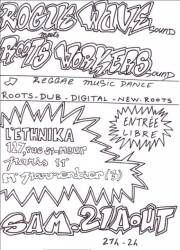 ROGUE WAVE SOUND
meets
ROOTS WORKERS SOUND
REGGAE MUSIC DANCE
ROOTS-DUB-DIGITAL-NEW-ROOTS
L'ETHNIKA
ENTRÉE
LIBRE
127, rue St-Maur
Paris 11°
M° Parmentier (3)
SAM. 21 AOUT
21h-2h